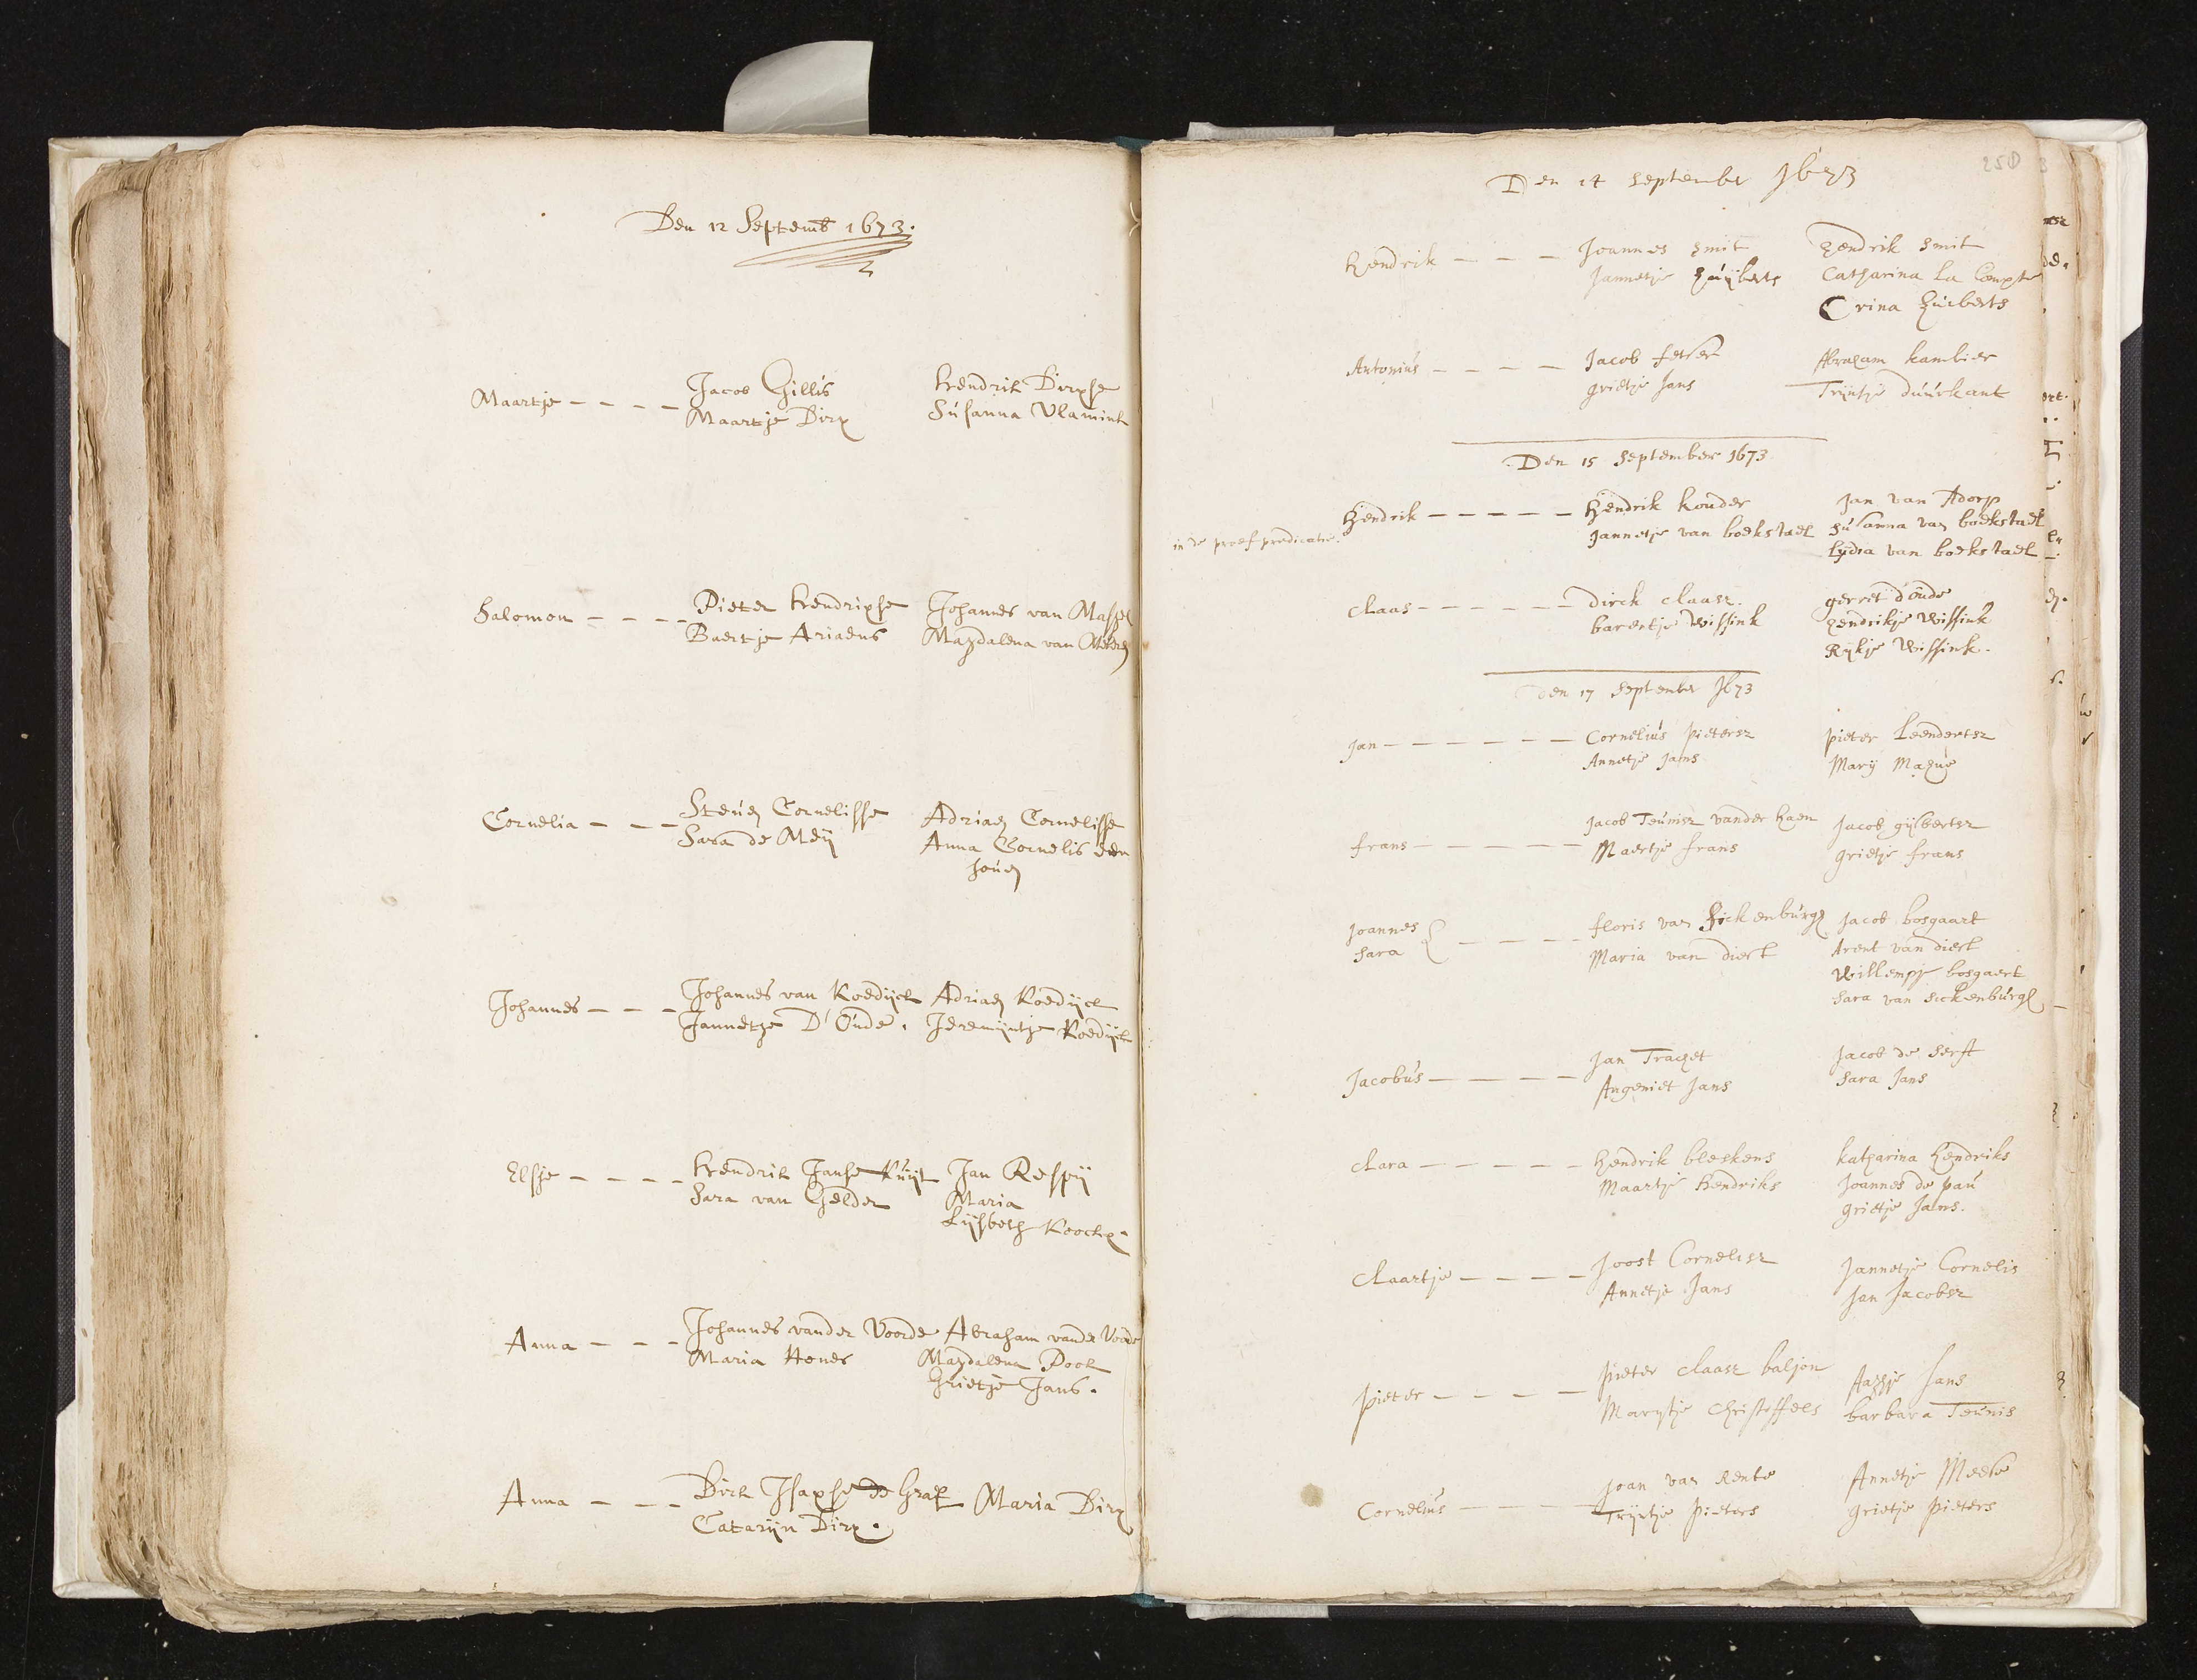 Den 12 Septemb 1673.
Maartje - - - - Jacob Gillis Hendrik Dirxse
Maartje Dirx Susanna Vlamink
Salomon - - - - Pieter Hendrixse Johannes van Massel
Baertje Ariaens Magdalena van
Cornelia - - - Steuen Cornelisse Adriaen Cornelisse
Sara de Meij Anna Cornelis den
houen
Johannes - - - Johannes van Koedijck Adriaen Koedijck
Jannetje D'Oude. Jeremijntje Koedijck
Elsje - - - - Hendrik Janse Kuijt Jan Respij
Sara van Gelder Maria
Lijsbeth Koockx.
Anna - - - Johannes vander Voorde Abraham vander Voorde
Maria Hones Magdalena Pook
Grietje Jans.
Anna - - - Dirk Isaxse de Graef Maria Dirx
Catarijn Dirx.
258
Den 14 September 1673
Hendrik - - - Joannes smit Hendrik smit
Jannetje huijberts Catharina la Compte
Crina huiberts
Antonius - - - - Jacob fetser Abraham kambier
grietje Jans Trijntje duurkant
Den 15 September 1673
Hendrik - - - - - Hendrik kouder Jan van Adorp
in de proef predicatie. Jannetje van boekstael susanna van boekstael
Lydia van boekstael
Claas - - - - - - dirck claasz. gerret d'oude
barentje wissink hendrikje wissink
Rijkje wissink.
den 17 September 1673
Jan - - - - - - Cornelius pietersz pieter Leendertsz
Annetje Jans Marij Mahue
frans - - - - - Jacob Teunisz vander haen Jacob gijsbertsz
Maertje frans grietje frans
Joannes floris van sickenburgh Jacob bosgaart
Sara - - - - Maria van diest Arent van diest
willempje bosgaert
Sara van sickenburgh
Jacobus - - - - - Jan Trachet Jacob de herst
Angeniet Jans Sara Jans
Clara - - - - - Hendrik bleskens katharina hendriks
Maartje hendriks Joannes de pau
grietje Jans.
Claartje - - - - Joost Cornelisz Jannetje Cornelis
Annetje Jans Jan Jacobsz
pieter - - - - pieter claasz baljon Aaghje Jans
Marijtje christoffels barbara Teunis
Cornelius - - - - Joan van Rente Annetje Meese
Trijntje pieters grietje pieters